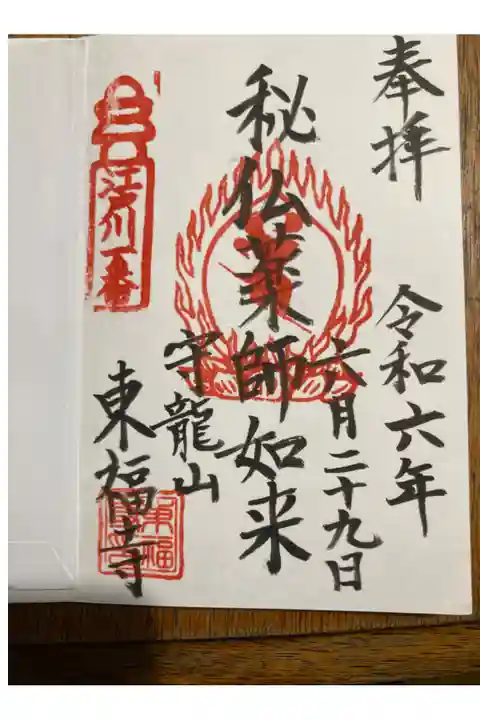 奉拝
令和六年
六月二十九日
秘仏薬師如来
守龍山
東福寺
江戸川一番